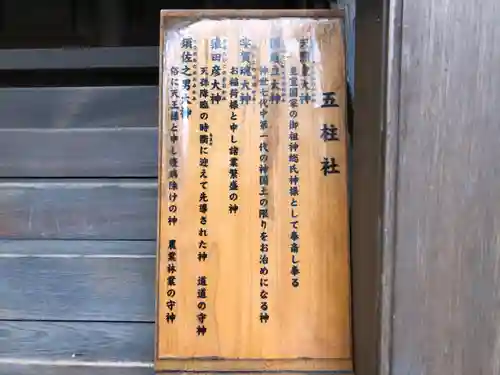 五柱社
天照皇大神
皇室国家の御祖神総氏神様として奉斎し奉る
国常立大神
神世七代中第一代の神国土の限りをお治めになる神
宇賀魂大神
お稲荷様と申し諸業繁盛の神
猿田彦大神
天孫降臨の時衢に迎えて先導された神 道道の守神
須佐之男大神
俗に天王様と申し疫病除けの神 農業林業の守神